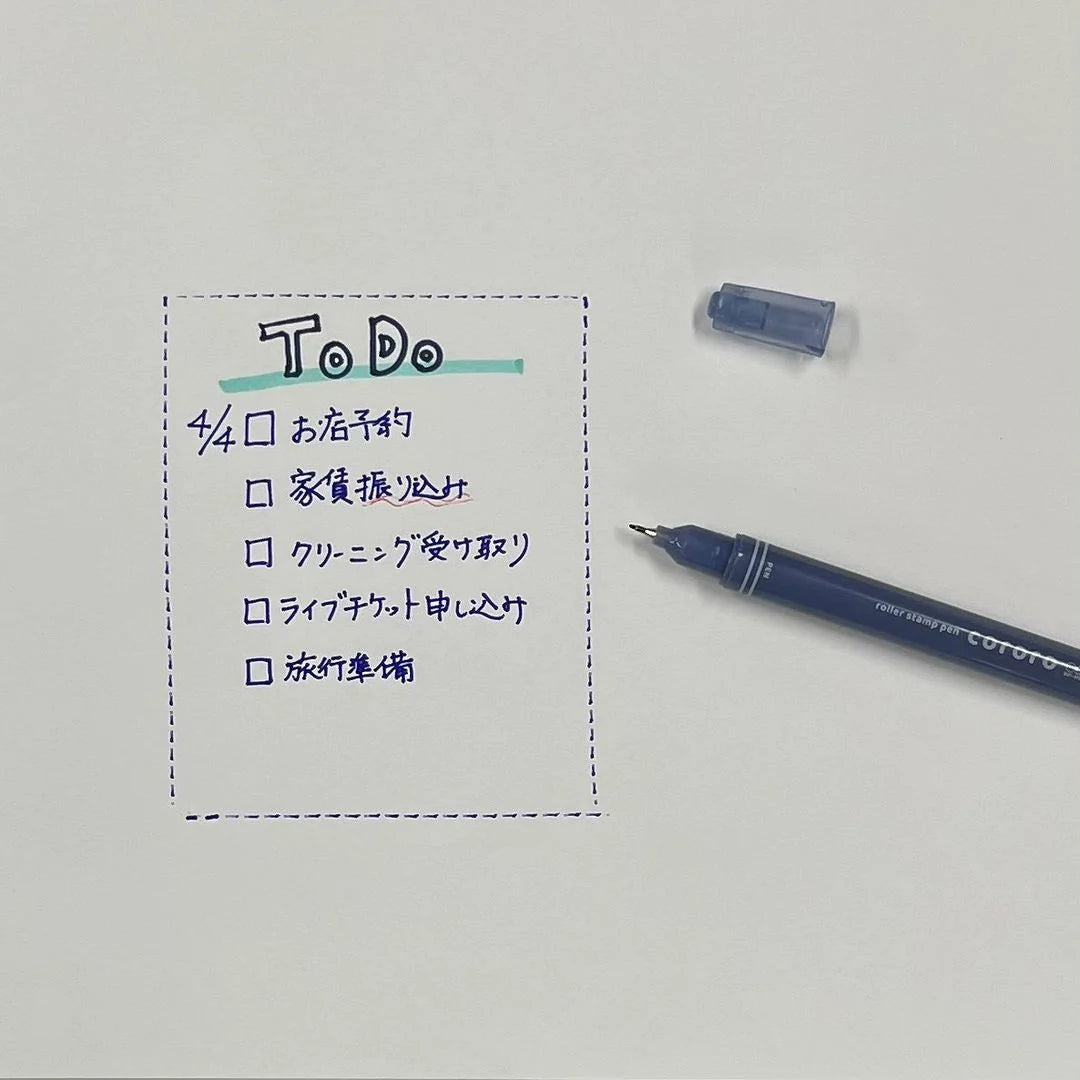 ToDo
4/4 □ お店予約
□ 家賃振り込み
□ クリーニング受け取り
□ ライブチケット申し込み
□ 旅行準備
PEN
roller stamp pen cororo